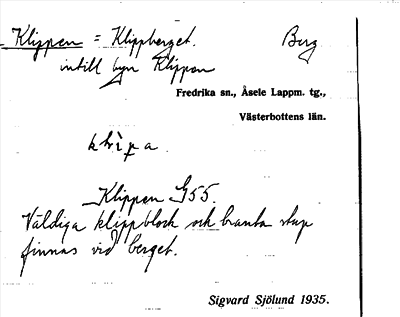 Klippen = Klippberget. Berg
intill byn Klippen
Fredrika sn., Åsele Lappm. tg.,
Västerbottens län.
Klippen G55.
Väldiga klippblock och branta stup
finnas vid berget.
Sigvard Sjölund 1935.